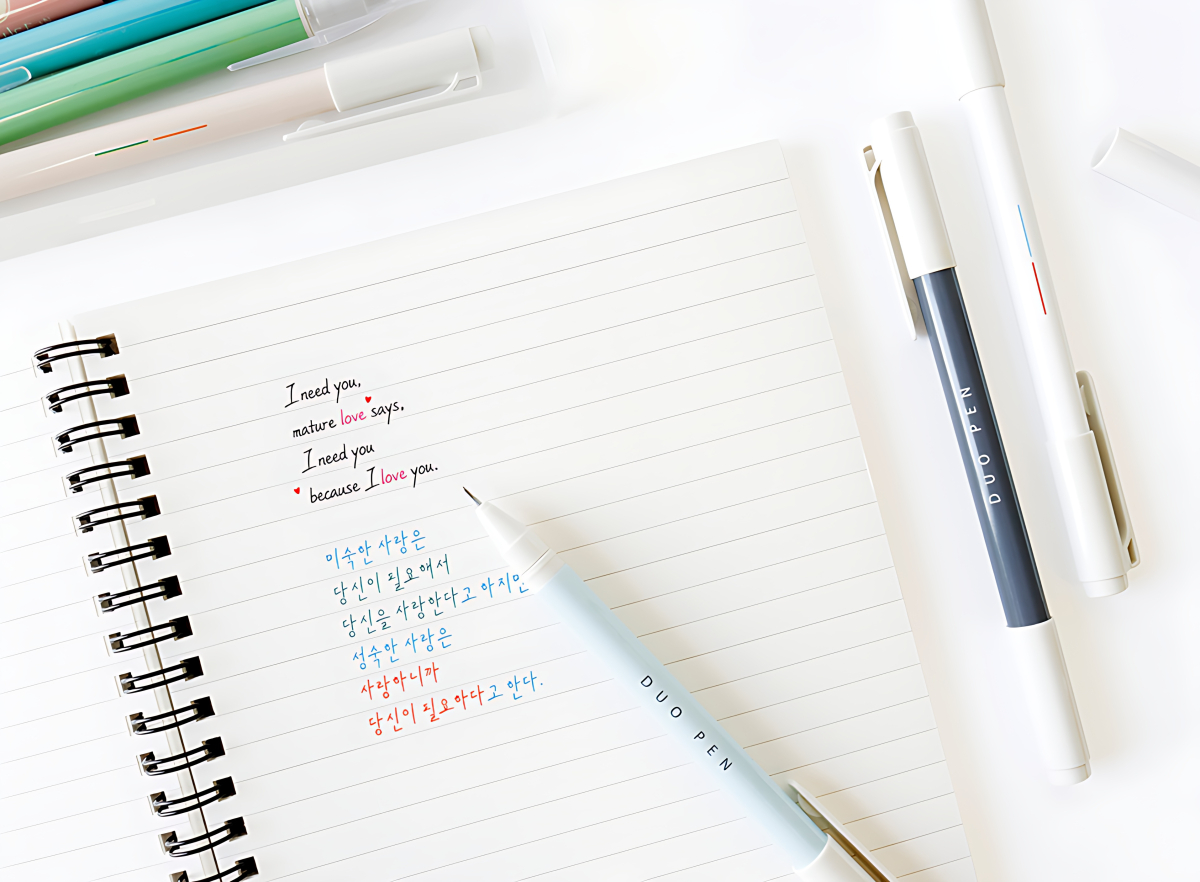 I need you,
mature love says,
I need you
because I love you.
미숙한 사랑은
당신이 필요해서
당신을 사랑한다고 하지만
성숙한 사랑은
사랑하니까
당신이 필요하다고 한다.
DUO PEN
DUO PEN